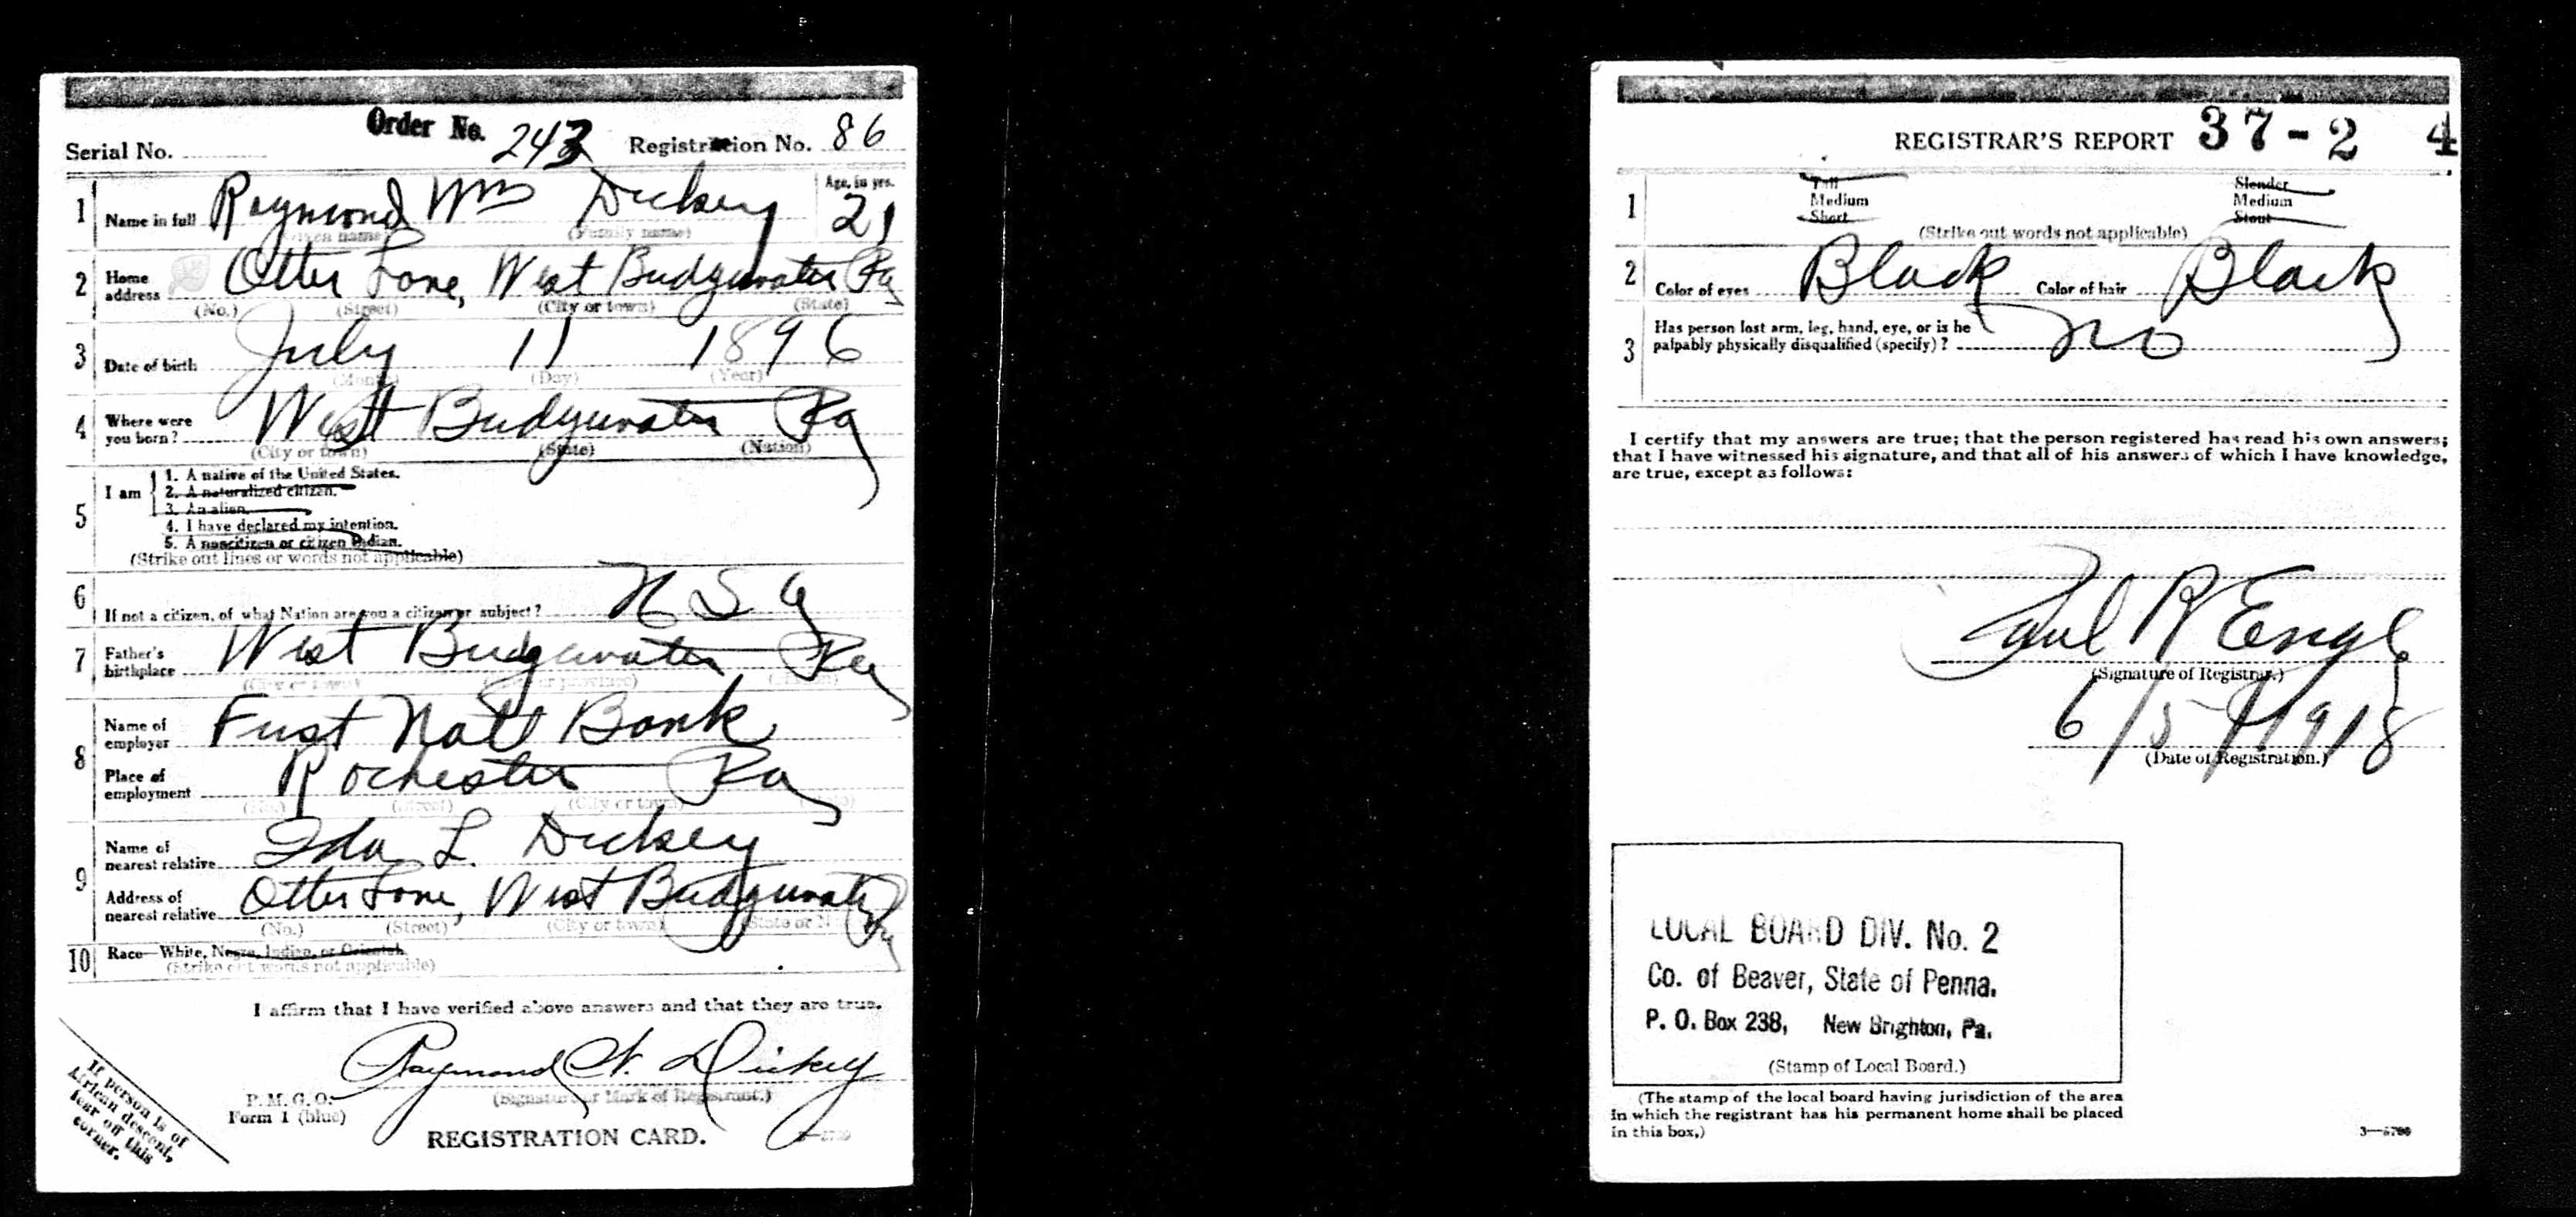 Order No. 243
Serial No. Registration No. 86
1 Name in full Raymond Wm Dickey Age, in yrs. 21
(Given name) (Family name)
2 Home address Otter Lane, West Bridgewater Pa
(No.) (Street) (City or town) (State)
3 Date of birth July 11 1896
(Month) (Day) (Year)
4 Where were you born? West Bridgewater Pa
(City or town) (State) (Nation)
5 I am
1. A native of the United States.
2. A naturalized citizen.
3. An alien.
4. I have declared my intention.
5. A noncitizen or citizen Indian.
(Strike out lines or words not applicable)
6 If not a citizen, of what Nation are you a citizen or subject? U S A
7 Father's birthplace West Bridgewater Pa
(City or town) (State or province) (Nation)
8 Name of employer First Natl Bank
Place of employment Rochester Pa
(No.) (Street) (City or town) (State)
9 Name of nearest relative Ida L. Dickey
Address of nearest relative Otter Lane, West Bridgewater Pa
(No.) (Street) (City or town) (State or N
10 Race—White, Negro, Indian, or Oriental.
(Strike out words not applicable)
I affirm that I have verified above answers and that they are true.
Raymond W. Dickey
(Signature or Mark of Registrant.)
P. M. G. O.
Form 1 (blue)
REGISTRATION CARD.
If person is of
African descent,
tear off this
corner.
REGISTRAR'S REPORT 37-2 4
1 Tall Slender
Medium Medium
Short Stout
(Strike out words not applicable)
2 Color of eyes Black Color of hair Black
3 Has person lost arm, leg, hand, eye, or is he
palpably physically disqualified (specify)? No
I certify that my answers are true; that the person registered has read his own answers;
that I have witnessed his signature, and that all of his answers of which I have knowledge,
are true, except as follows:
Paul R Engle
(Signature of Registrar.)
6/5/1918
(Date of Registration.)
LOCAL BOARD DIV. No. 2
Co. of Beaver, State of Penna.
P. O. Box 238, New Brighton, Pa.
(Stamp of Local Board.)
(The stamp of the local board having jurisdiction of the area
in which the registrant has his permanent home shall be placed
in this box.)